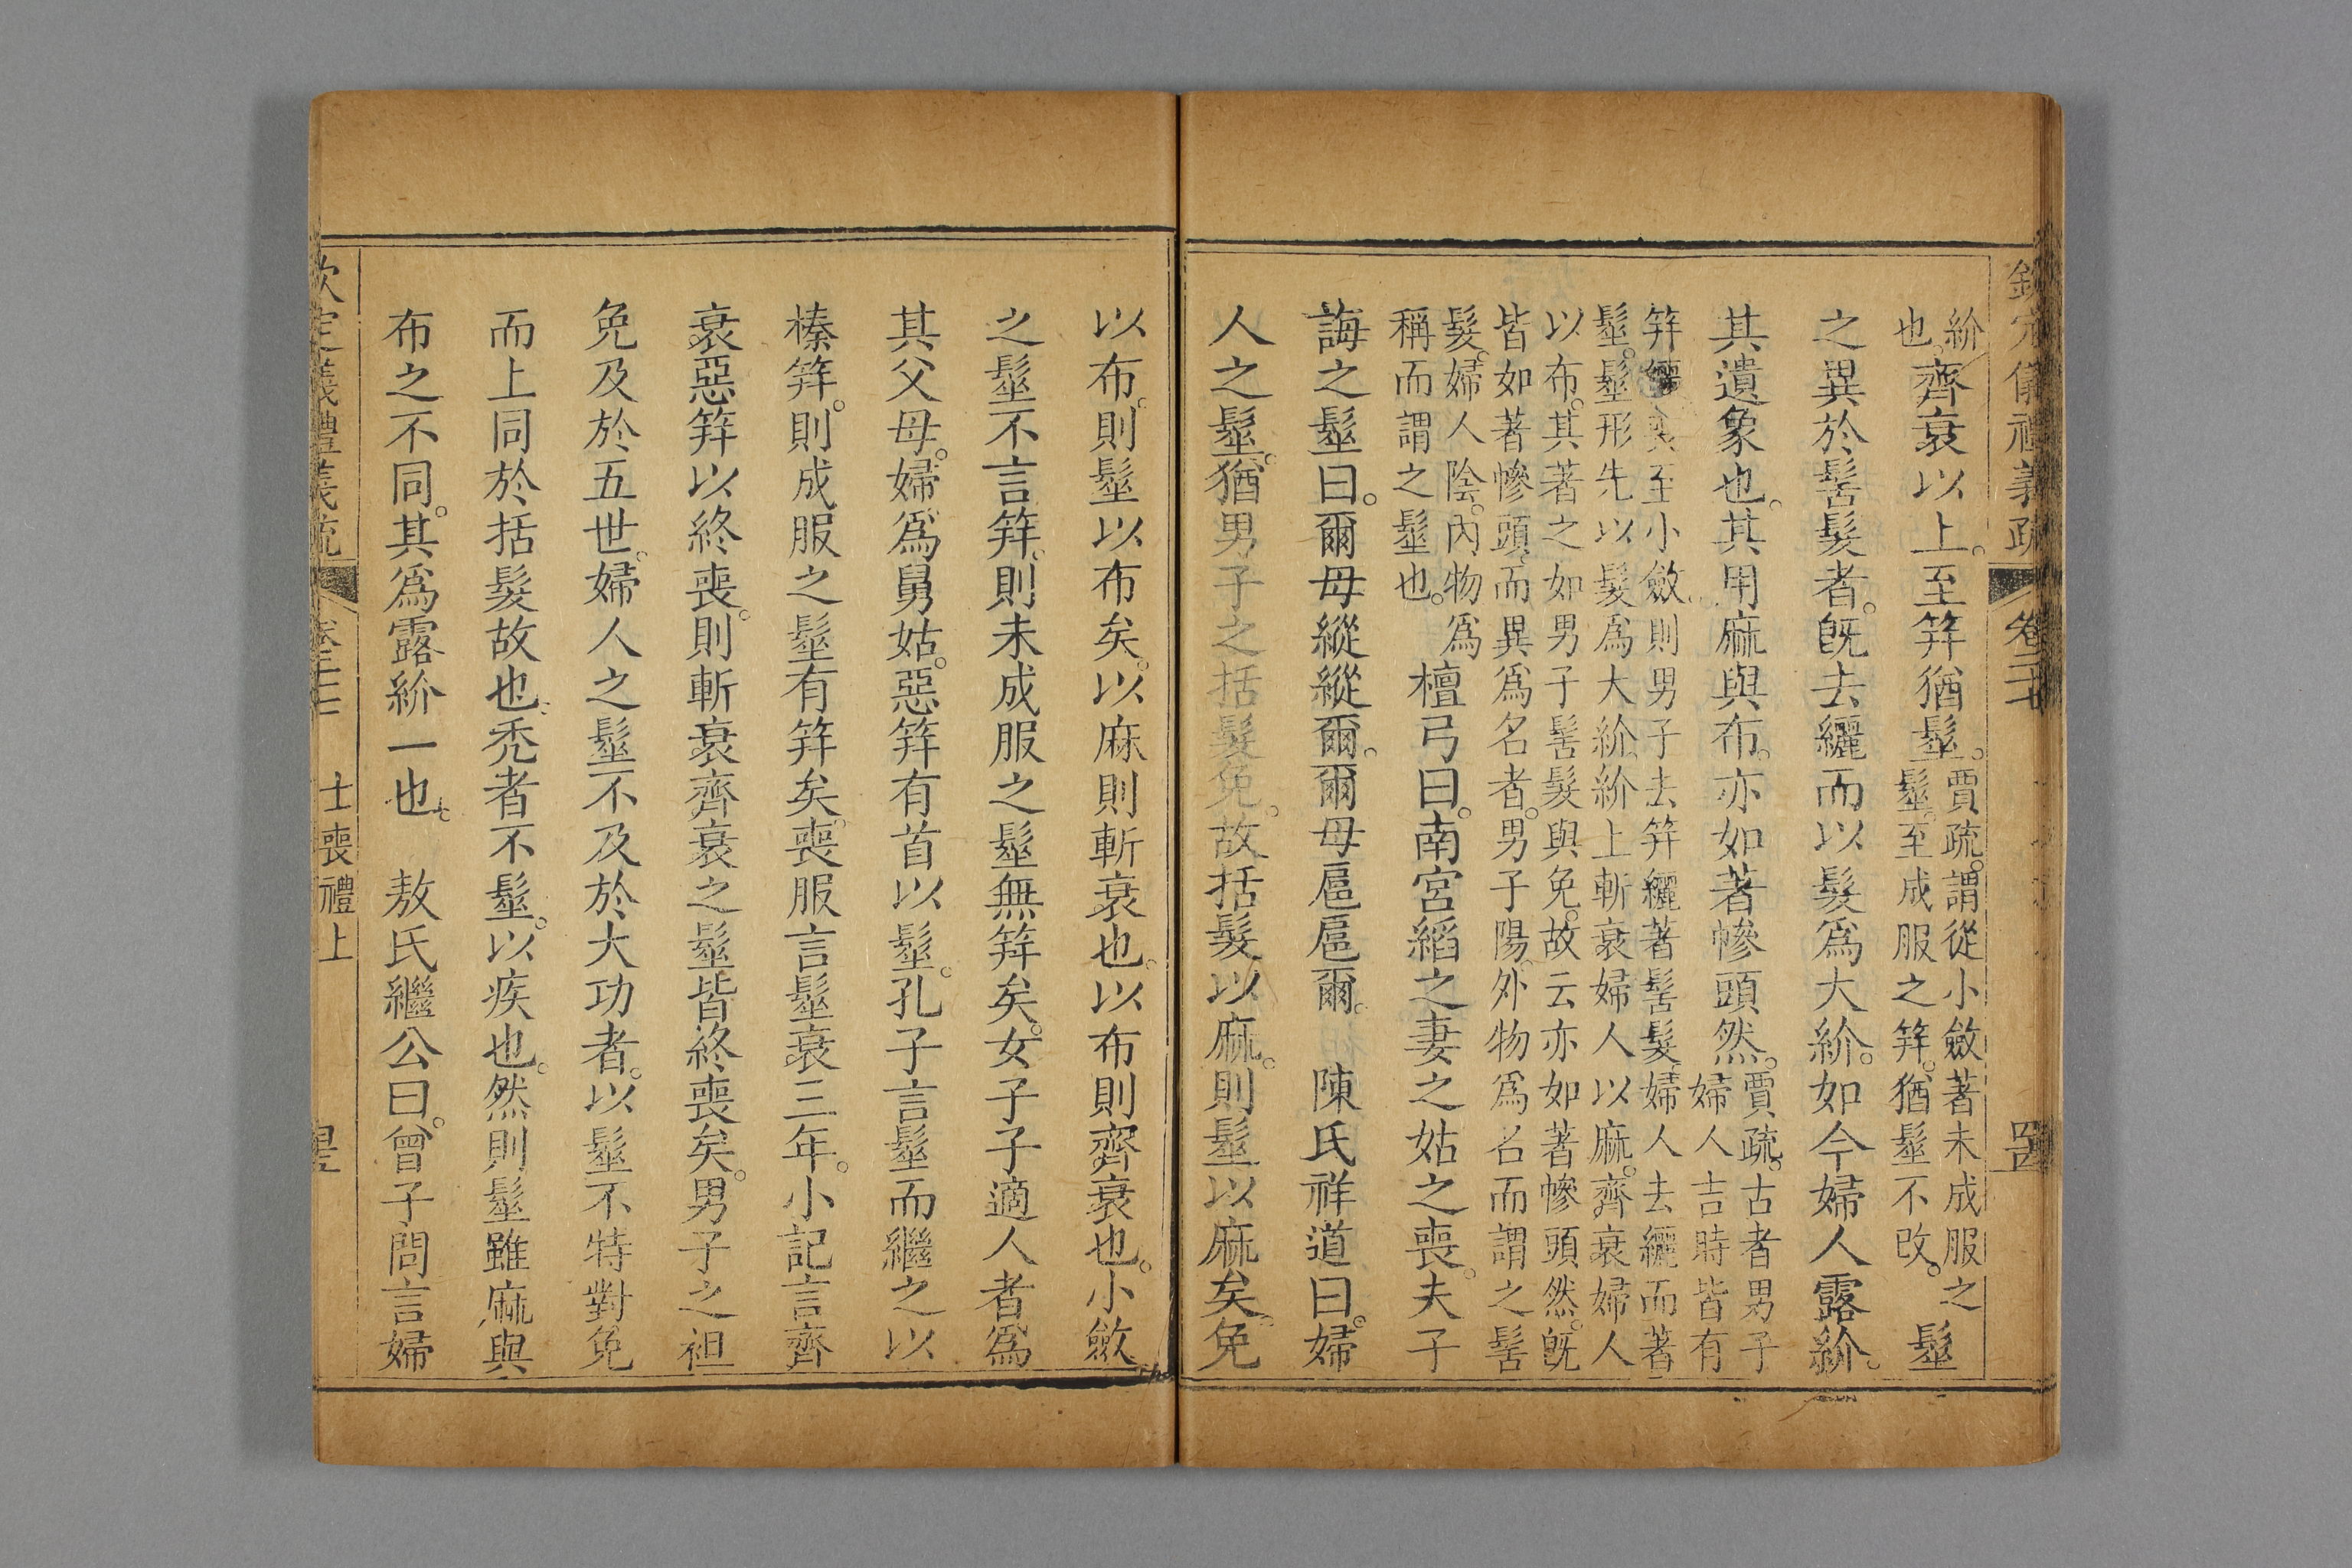 欽定儀禮義疏 卷二十七
紒
也。
齊衰以上。至笄猶髽。
賈疏。謂從小斂著未成服之
髽。至成服之笄。猶髽不改。
髽
之異於髺髮者。旣去纚而以髮爲大紒。如今婦人露紒。
其遺象也。其用麻與布。亦如著幓頭然。
賈疏。古者男子
婦人吉時皆有
笄纚至小斂。則男子去笄纚著髺髮。婦人去纚而著
髽。髽形先以髮爲大紒。紒上斬衰婦人以麻。齊衰婦人
以布。其著之如男子髺髮與免。故云亦如著幓頭然。旣
皆如著幓頭。而異爲名者。男子陽。外物爲名而謂之髺
髮。婦人陰。內物爲
稱而謂之髽也。
檀弓曰。南宮縚之妻之姑之喪。夫子
誨之髽曰。爾毋縱縱爾。爾毋扈扈爾。 陳氏祥道曰。婦
人之髽。猶男子之括髮免。故括髮以麻。則髽以麻矣。免
以布。則髽以布矣。以麻則斬衰也。以布則齊衰也。小斂
之髽不言笄。則未成服之髽無笄矣。女子子適人者爲
其父母。婦爲舅姑。惡笄有首以髽。孔子言髽而繼之以
榛笄。則成服之髽有笄矣。喪服言髽衰三年。小記言齊
衰惡笄以終喪。則斬衰齊衰之髽皆終喪矣。男子之袒
免及於五世。婦人之髽不及於大功者。以髽不特對免
而上同於括髮故也。禿者不髽。以疾也。然則髽雖麻與
布之不同。其爲露紒一也。 敖氏繼公曰。曾子問言婦
欽定義禮義疏 士喪禮上